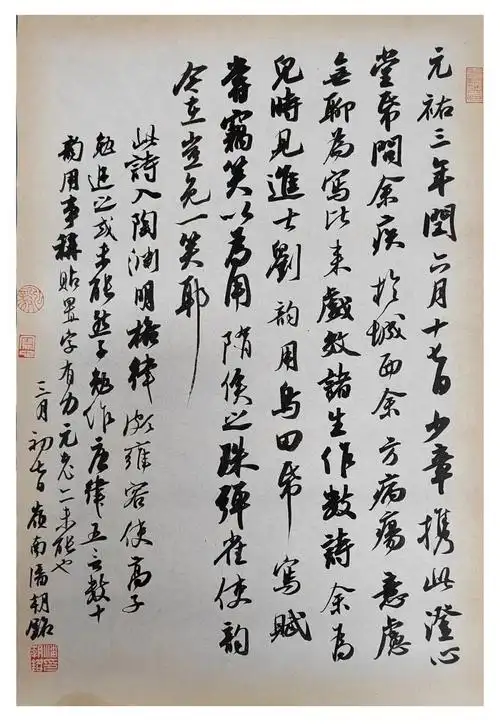 元祐三年閏六月十七日少章攜此澄心
堂帋問余疾於城西余方病瘍意慮
無聊為寫比來戲效諸生作數詩余為
兒時見進士劉韵用鳥田帋寫賦
嘗竊笑以為用隋侯之珠彈雀使韵
今在豈免一笑耶
此詩入陶淵明格律頗雍容使高子
勉追之或未能然子勉作唐律五言數十
韵用事稱貼置字有力元老亦未能也
三月初七日嶺南潘朝銘